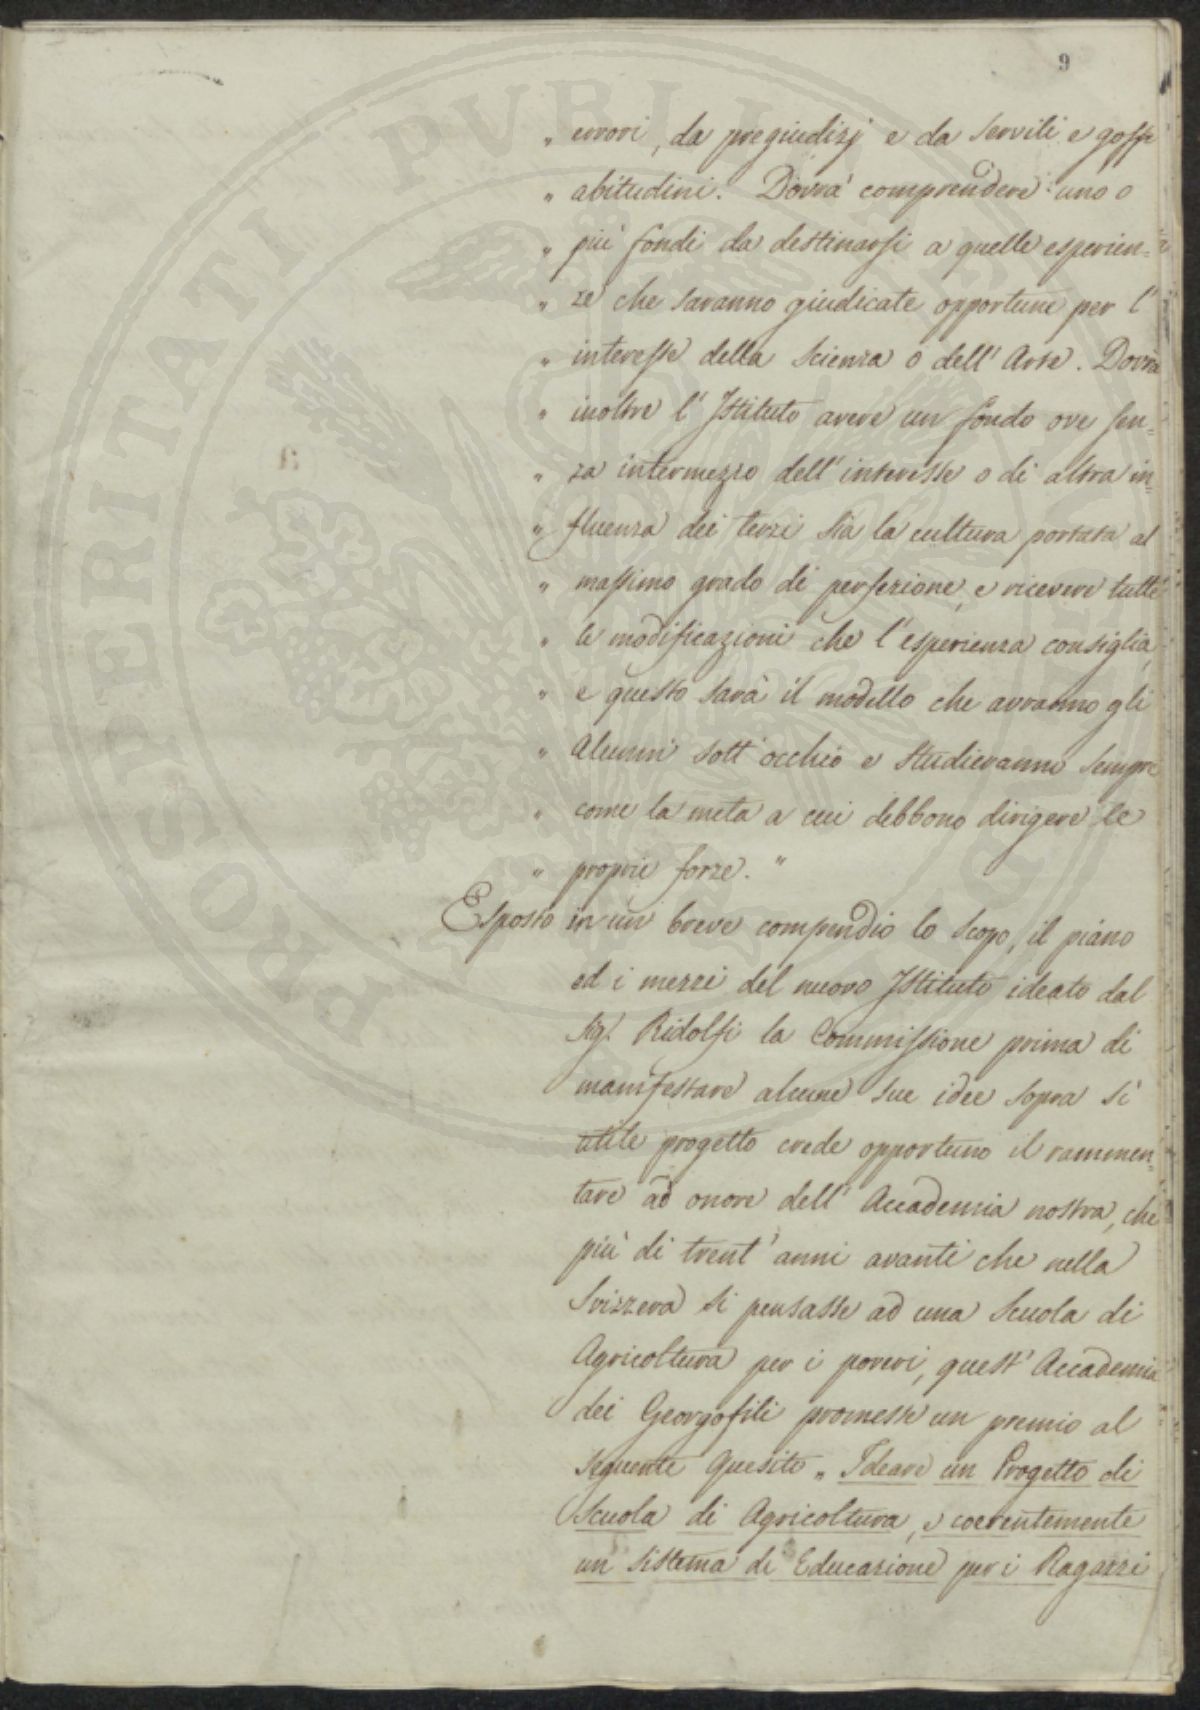 9
„ errori, da pregiudizj e da servili e goffe
„ abitudini. Dovrà comprendere uno o
„ più fondi da destinarsi a quelle esperien=
„ ze che saranno giudicate opportune per l'
„ interesse della Scienza o dell'Arte. Dovrà
„ inoltre l'Istituto avere un fondo ove sen=
„ za intermezzo dell'interesse o di altra in=
„ fluenza dei terzi sia la cultura portata al
„ massimo grado di perfezione, e ricevere tutte
„ le modificazioni che l'esperienza consiglia,
„ e questo sarà il modello che avranno gli
„ Alunni sott'occhio e studieranno sempre
„ come la meta a cui debbono dirigere le
„ proprie forze. "
Esposto in un breve compendio lo scopo, il piano
ed i mezzi del nuovo Istituto ideato dal
Sig. Ridolfi la Commissione prima di
manifestare alcune sue idee sopra sì
utile progetto crede opportuno il rammen=
tare ad onore dell'Accademia nostra, che
più di trent'anni avanti che nella
Svizzera si pensasse ad una Scuola di
Agricoltura per i poveri, quest'Accademia
dei Georgofili promesse un premio al
seguente Quesito „ Ideare un Progetto di
Scuola di Agricoltura, e coerentemente
un Sistema di Educazione per i Ragazzi
PROSPERITATI PUBLICAE